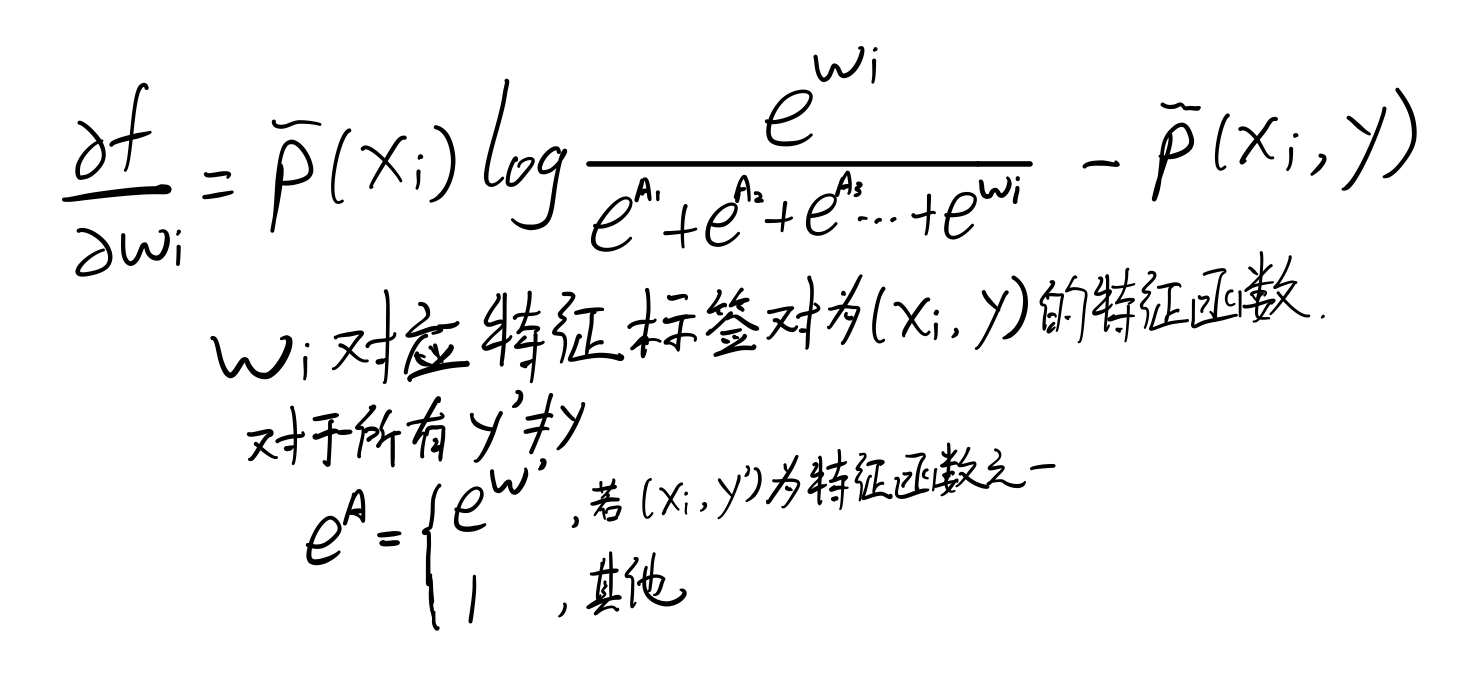 ∂f/∂wᵢ = p̃(xᵢ) log e^{wᵢ}/(e^{A₁}+e^{A₂}+e^{A₃}...+e^{wᵢ}) - p̃(xᵢ,y)
wᵢ对应特征标签对为(xᵢ,y)的特征函数.
对于所有y'≠y
e^A = { e^{w'} ,若(xᵢ,y')为特征函数之一
1 ,其他